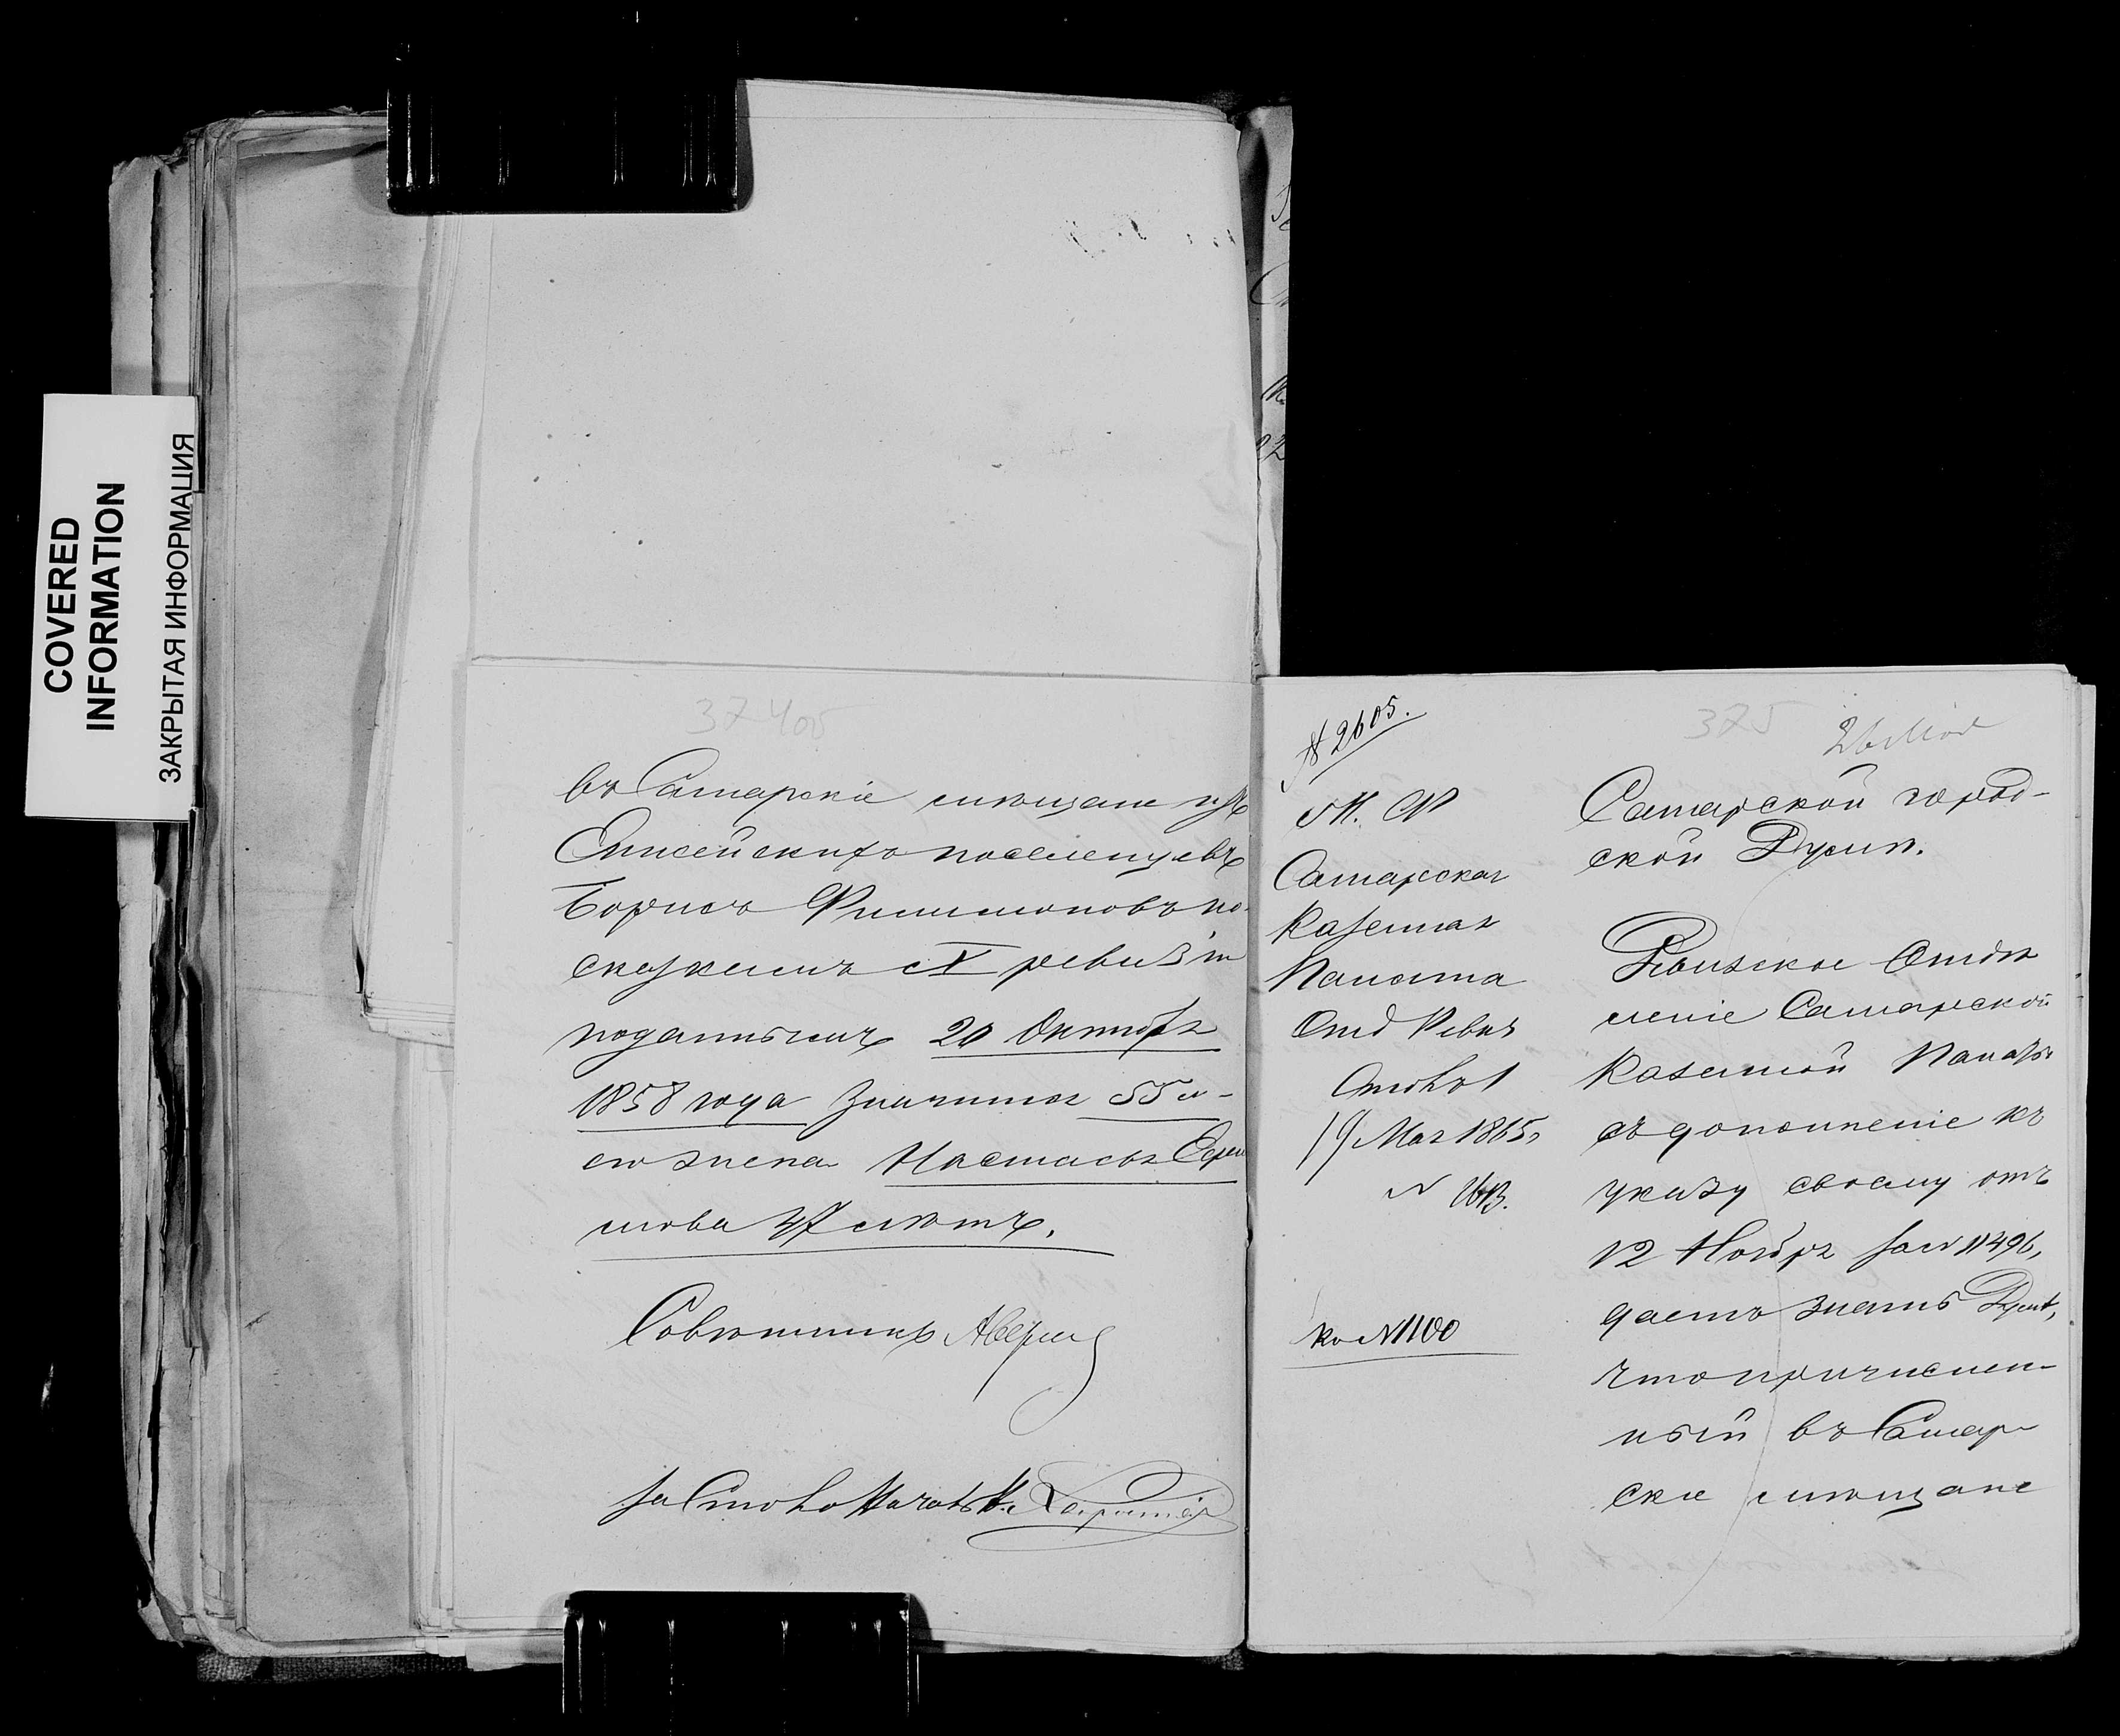 COVERED
INFORMATION
ЗАКРЫТАЯ ИНФОРМАЦИЯ
374 об
въ Самарскіе мѣщане изъ
Енисейскихъ поселенцевъ
Борисъ Филимоновъ по
сказкамъ X ревизіи
поданнымъ 20 Октября
1858 года значится 55 и
его жена Настасья Ефи
мова 47 лѣтъ.
Совѣтникъ
За Столоначальн.
№ 2605.
М. Ф.
Самарская
Казенная
Палата
Отд Ревиз
Столъ 1
19 Мая 1865
№
ко № 1100
375
26 Мая
Самарской город-
ской Думѣ.
Ревизское Отдѣ
леніе Самарской
Казенной Палаты
въ дополненіе къ
указу своему отъ
12 Ноября за № 11496,
даетъ знать Думѣ,
что причислен-
ный въ Самар-
скіе мѣщане